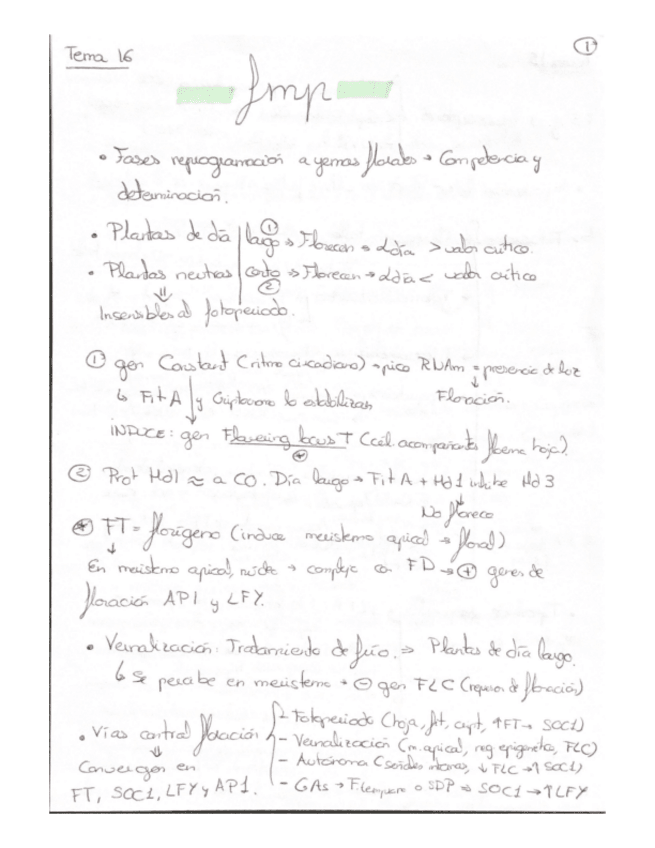 Tema 16
1
fmp
• Fases reprogramación a yemas florales → Competencia y
determinación.
• Plantas de día largo ① → Florecen → Ldía > valor crítico.
• Plantas neutras | corto ② → Florecen → Ldía < valor crítico
⇓
Insensibles al fotoperiodo.
① gen Constant (ritmo circadiano) → pico RNAm = presencia de luz
↳ Fit A y Criptocromo lo estabilizan ↓ Floración.
INDUCE: gen Flowering locus T (cél. acompañante floema hoja).
⊛
② Prot Hd1 ≈ a CO. Día largo → Fit A + Hd1 inhibe Hd3
↓
No florece
⊛ FT = florígeno (induce meristemo apical → floral)
↓
En meristemo apical, núcleo → complejo con FD → ⊕ genes de
floración AP1 y LFY.
• Vernalización: Tratamiento de frío. ⇒ Plantas de día largo.
↳ Se percibe en meristemo → ⊖ gen FLC (represor de floración)
• Vías control floración
⇓
Convergen en
FT, SOC1, LFY y AP1.
- Fotoperiodo (hoja, fit, cript, ↑FT → SOC1)
- Vernalización (m. apical, reg epigenética, FLC)
- Autónoma (señales internas, ↓ FLC → ↑ SOC1)
- GAs → F temprano o SDP ⇒ SOC1 → ↑ LFY